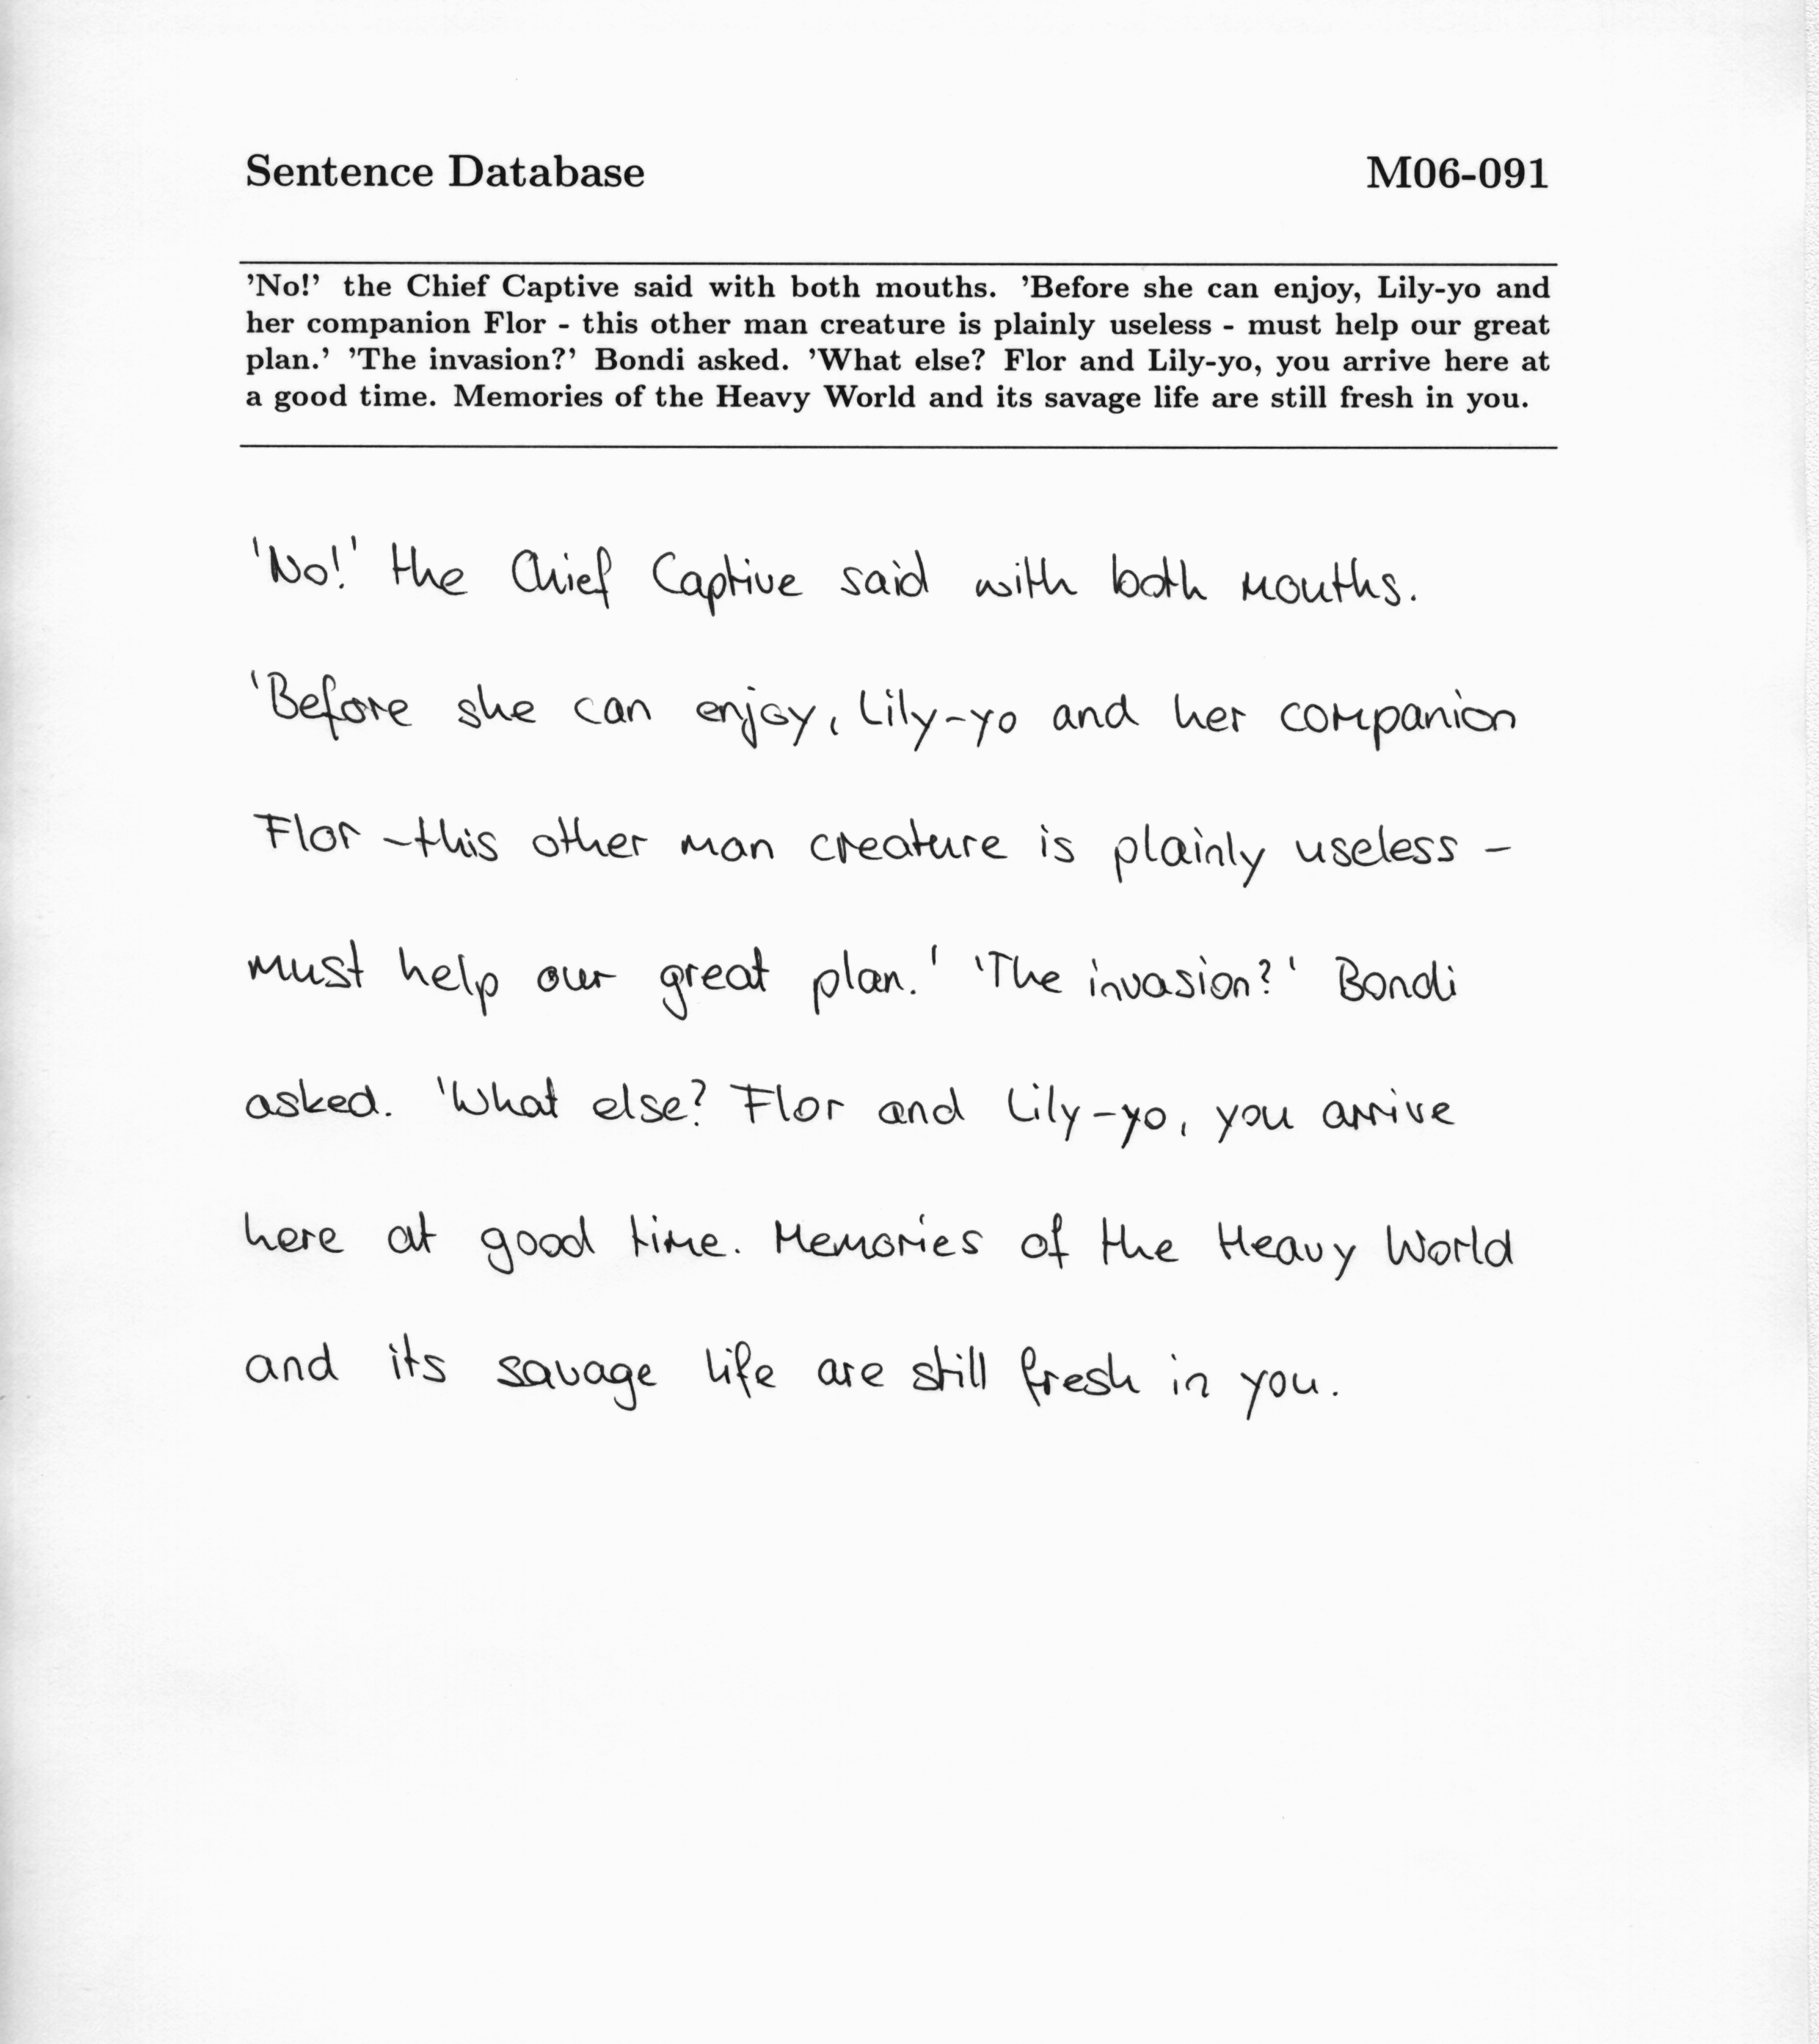 Sentence Database M06-091
'No!' the Chief Captive said with both mouths. 'Before she can enjoy, Lily-yo and
her companion Flor - this other man creature is plainly useless - must help our great
plan.' 'The invasion?' Bondi asked. 'What else? Flor and Lily-yo, you arrive here at
a good time. Memories of the Heavy World and its savage life are still fresh in you.
'No!' the Chief Captive said with both mouths.
'Before she can enjoy, Lily-yo and her companion
Flor -this other man creature is plainly useless -
must help our great plan.' 'The invasion?' Bondi
asked. 'What else? Flor and Lily-yo, you arrive
here at good time. Memories of the Heavy World
and its savage life are still fresh in you.